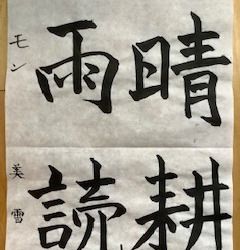 晴耕
雨読
モン 美雪